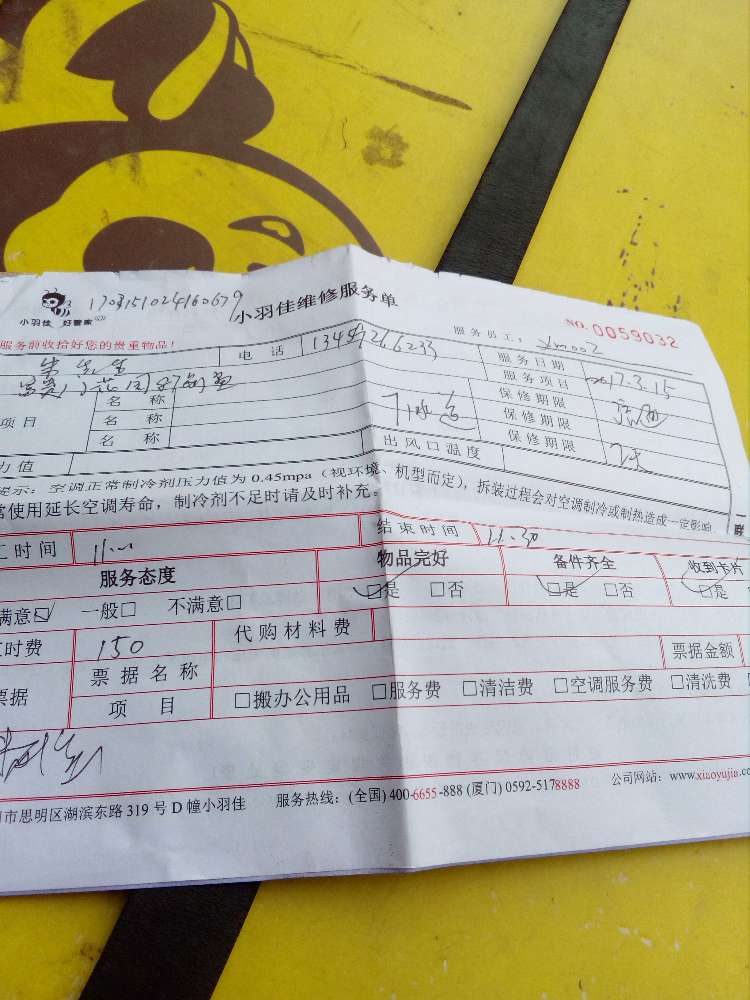 1703151024160679
小羽佳维修服务单
小羽佳 好管家
NO. 0059032
服务前收拾好您的贵重物品!
服务员工: Xm002
朱先生 电 话
服务日期 2017.3.15
名 称 服务项目
项目 名 称 保修期限
名 称 保修期限
保修期限
力值 出风口温度
提示: 空调正常制冷剂压力值为 0.45mpa (视环境、机型而定), 拆装过程会对空调制冷或制热造成一定影响
常使用延长空调寿命, 制冷剂不足时请及时补充。
工时间 结束时间 11:30
服务态度 物品完好 备件齐全 收到卡片
满意☑ 一般□ 不满意□ □是 □否 □是 □否 □是
工时费 150 代购材料费
票据 票据名称 票据金额
项 目 □搬办公用品 □服务费 □清洁费 □空调服务费 □清洗费
市思明区湖滨东路 319 号 D 幢小羽佳 服务热线: (全国) 400-6655-888 (厦门) 0592-5178888 公司网站: www.xiaoyujia.co